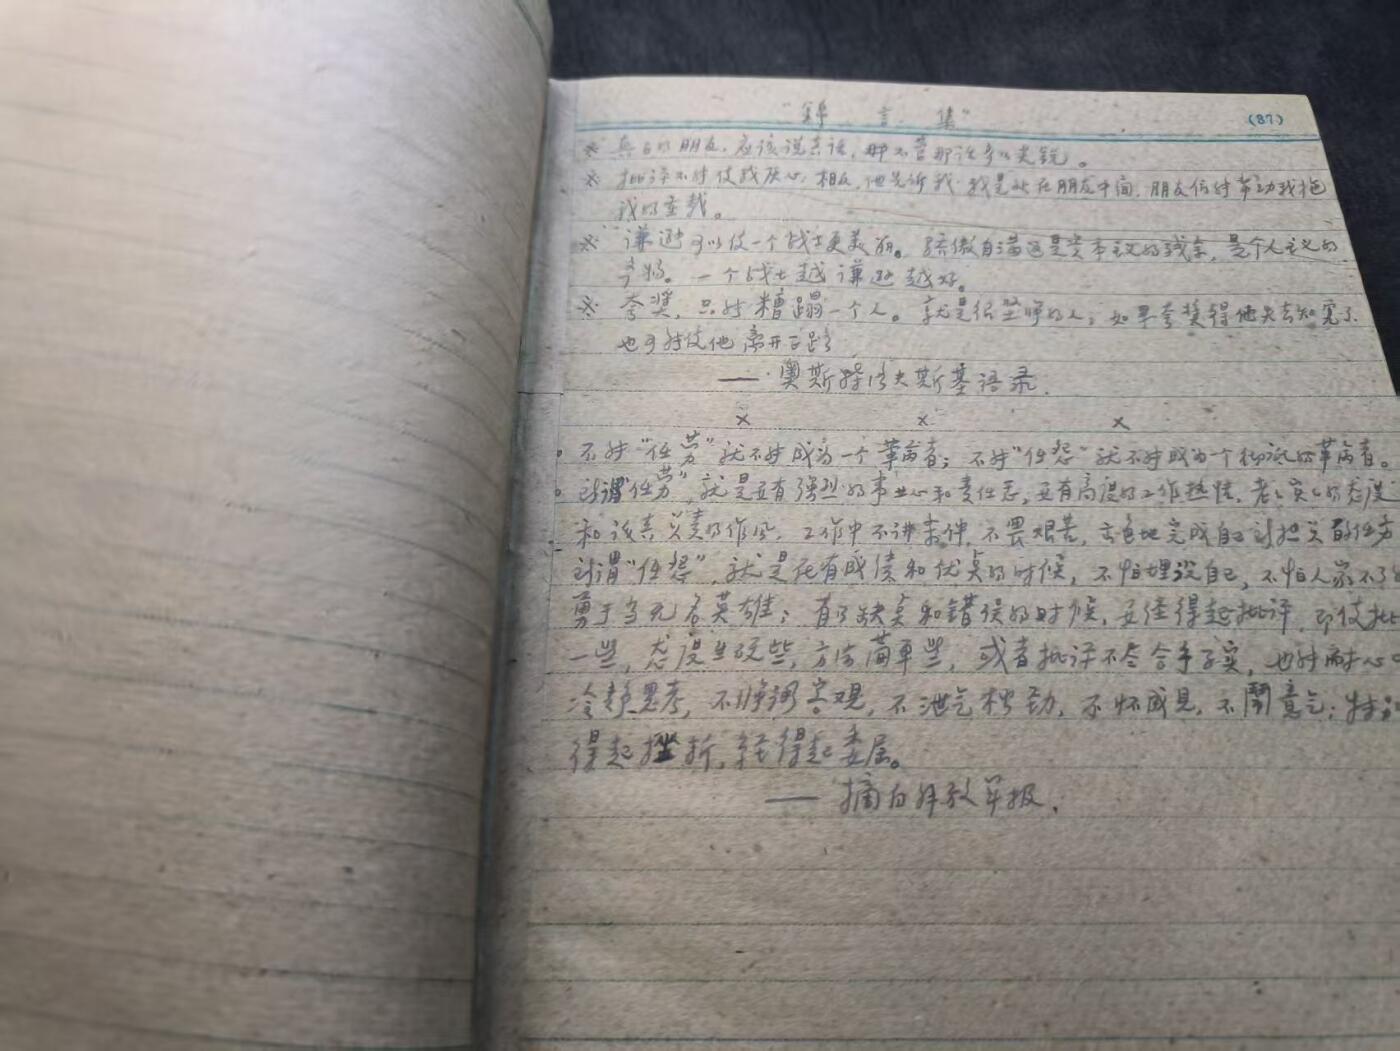 "锦言集" (87)
※ 真正的朋友，应该说真话，那不管那话多么尖锐。
※ 批评不能使我灰心，相反，他告诉我，我是处在朋友中间，朋友们能帮助我拖
我的重载。
※ 谦逊可以使一个战士更美丽。骄傲自满这是资本主义的残余，是个人主义的
一个战士越谦逊越好。
※ 夸奖，只能糟蹋一个人。就是很坚强的人，如果夸奖得他失去知觉了
也可能使他离开正路
——奥斯特洛夫斯基语录.
× × ×
不能"任劳"就不能成为一个革命者；不能"任怨"就不能成为个彻底的革命者。
所谓"任劳"，就是要有强烈的事业心和责任感，要有高度的工作热情，老老实实的态度
和认真负责的作风，工作中不讲条件，不畏艰苦，出色地完成自己所担负的任务
所谓"任怨"，就是在有成绩和优点的时候，不怕埋没自己，不怕人家不了
勇于当无名英雄；有了缺点和错误的时候，要经得起批评，即使批
一些，态度生硬些，方法简单些，或者批评不尽合乎事实，也能耐心
冷静思考，不强调客观，不泄气松劲，不怀成见，不鬧意气；
得起挫折，经得起委屈。
——摘自解放军报.